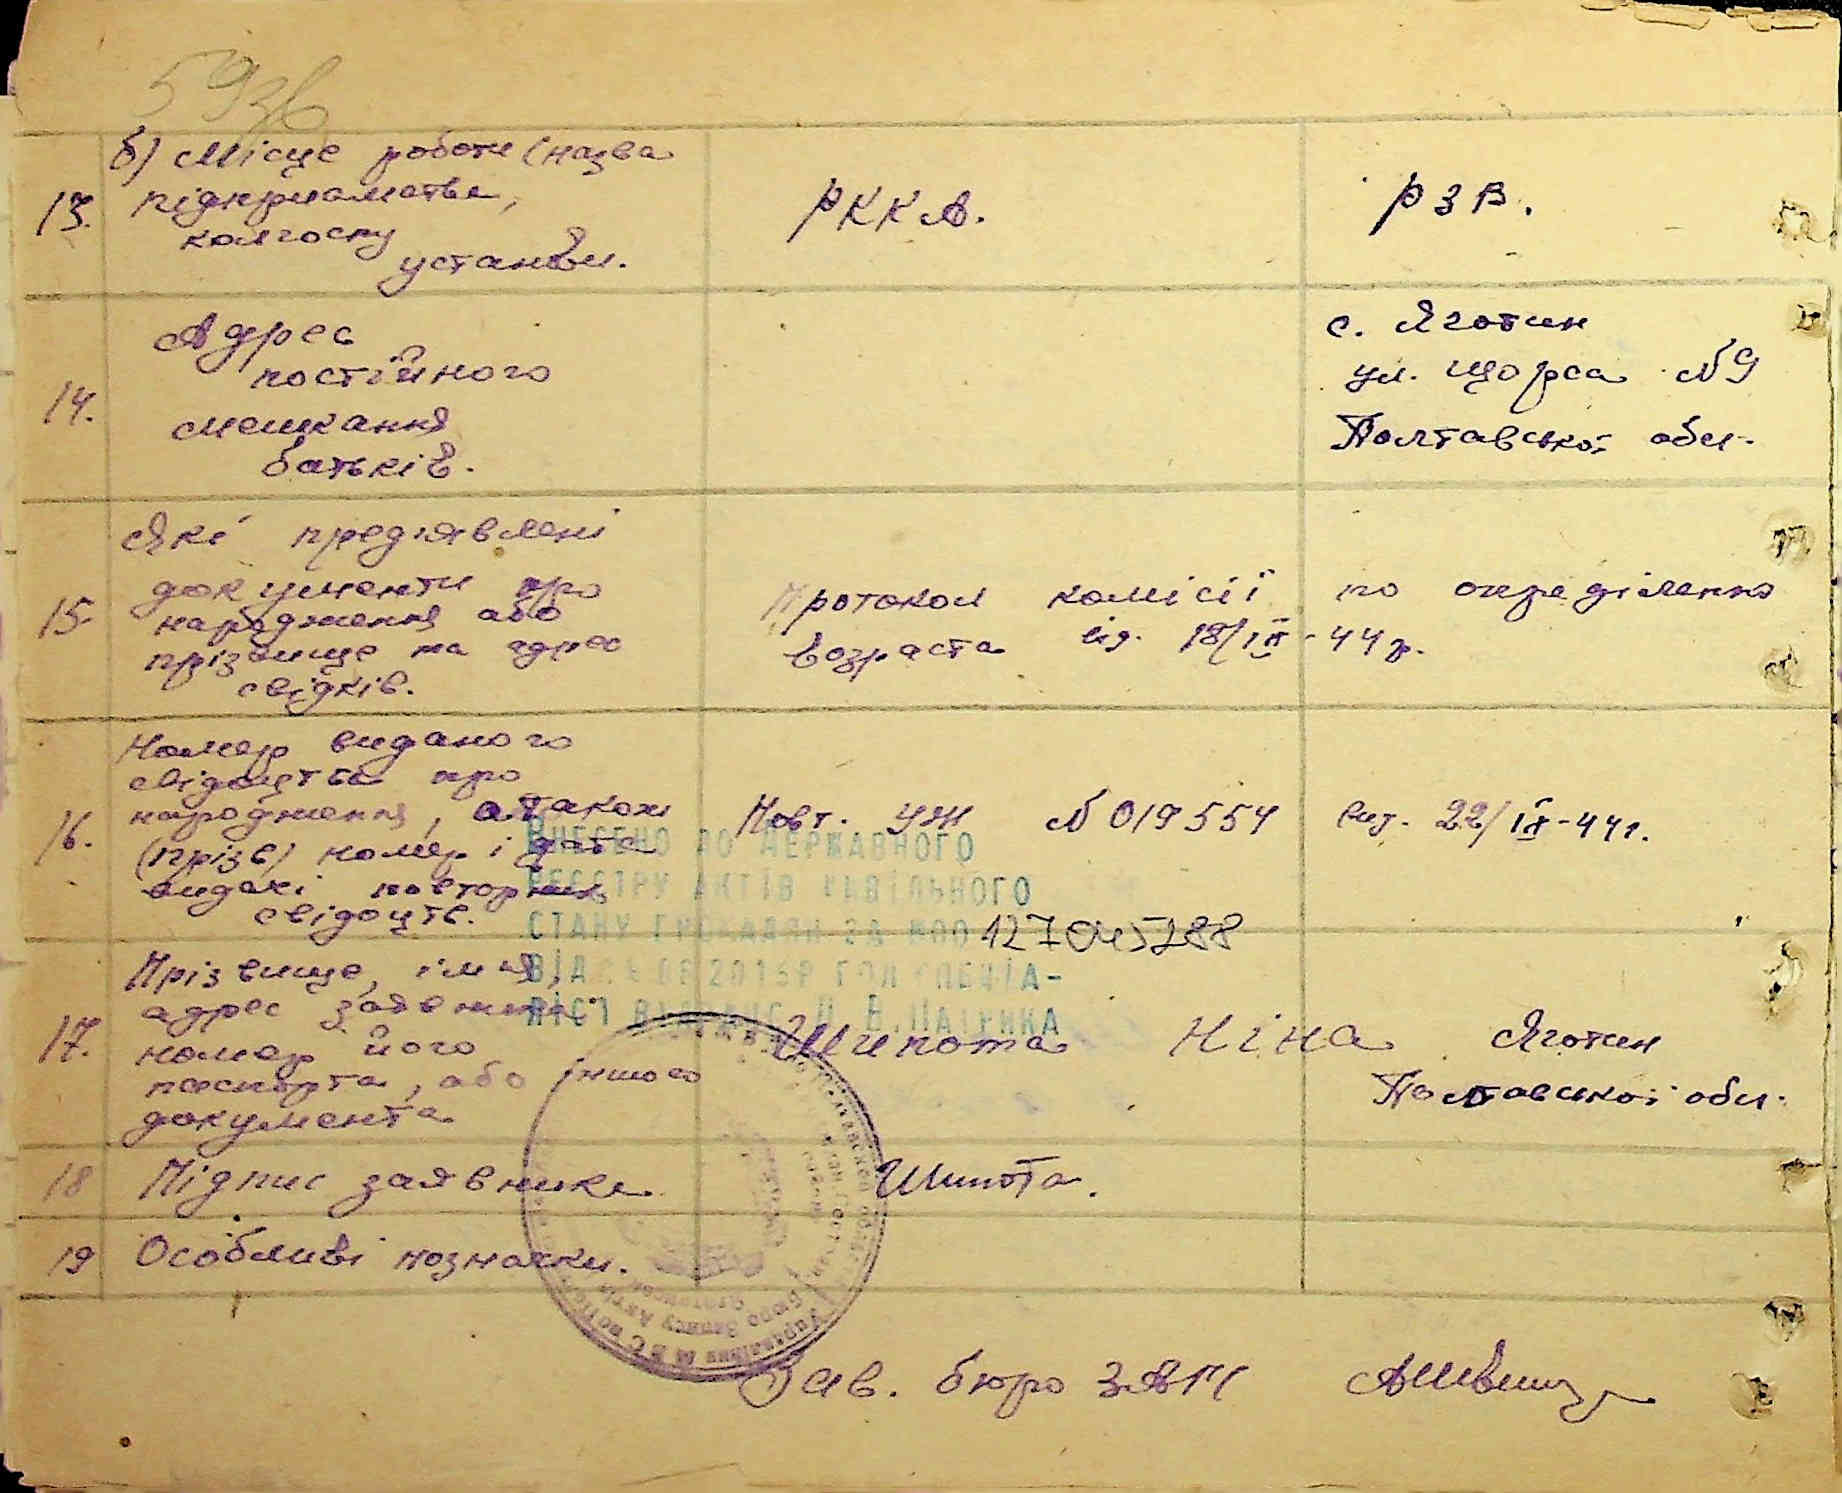 593в
13. б) Місце роботи (назва
підприаматва,
колгоспу
установи.
РККА.
РЗВ.
14. Адрес
постійного
мешкання
батьків.
с. Яготин
ул. Щорса №9
Полтавської обл.
15. Які предіявлені
документи про
народження або
прізвище та адрес
свідків.
Протокол комісії по опреділенню
возраста від. 18/IX-44 р.
16. Номер виданого
свідоцтва про
народження, а також
(прізв) номер і дата
видачі повторних
свідоцтв.
Повт. УЖ №019554 вид. 22/IX-44г.
ВНЕСЕНО ДО ДЕРЖАВНОГО
РЕЄСТРУ АКТІВ ЦИВІЛЬНОГО
СТАНУ ГРОМАДЯН ЗА №00
ВІД 2015Р ГОЛ СПЕЦІА-
ЛІСТ
17. Прізвище, імя,
адрес заявника
номер його
паспорта, або іншого
документа
Шипота Ніна Яготин
Полтавської обл.
18 Підпис заявника
Шипота.
19 Особливі позначки.
Зав. бюро ЗАГС